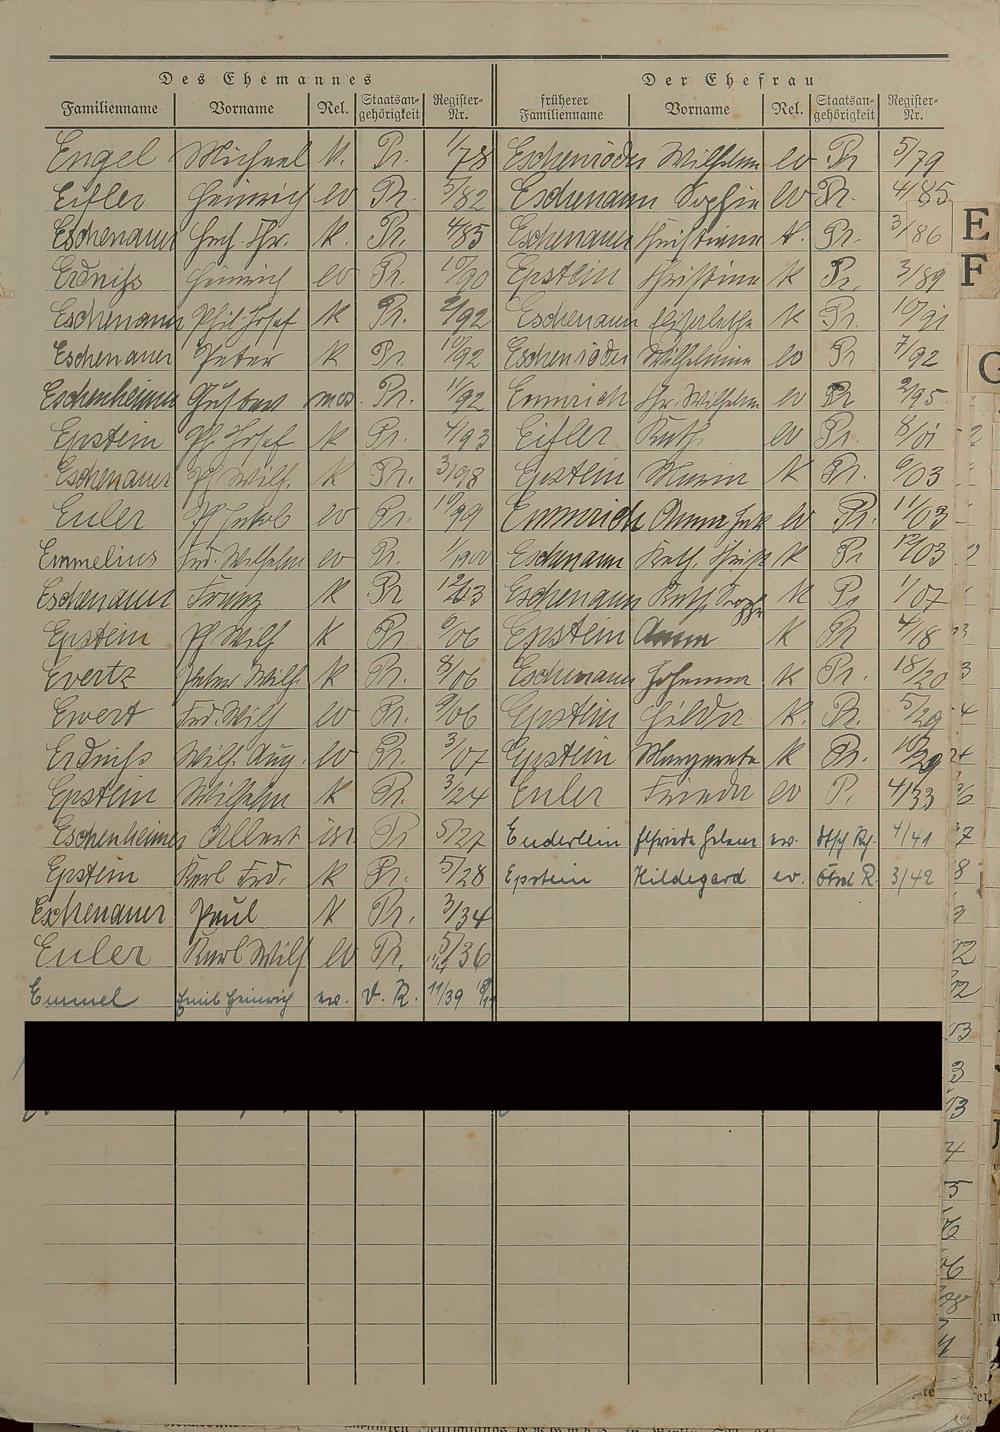 Des Ehemannes Der Ehefrau
Familienname Vorname Rel. Staatsan-gehörigkeit Register-Nr. früherer Familienname Vorname Rel. Staatsan-gehörigkeit Register-Nr.
Engel Michael k. Pr. 1/78 Eschenröder Wilhelmine ev Pr 5/79
Eifler Heinrich ev Pr. 5/82 Eschenauer Sophie ev Pr. 4/85
Eschenauer Hch. Chr. k. Pr. 4/85 Eschenauer Christiane k. Pr. 3/86
E
Erdniss Heinrich ev Pr. 10/90 Epstein Christine k Pr. 3/89
F
Eschenauer Phil Josef k Pr. 2/92 Eschenauer Elisabetha k Pr. 10/91
Eschenauer Peter k Pr. 10/92 Eschenröder Wilhelmine ev Pr 7/92
G
Eschenheimer Gustav mos. Pr. 11/92 Emmrich Chr. Wilhelm ev Pr 2/95
Epstein Ph. Josef k Pr. 4/93 Eifler Kath. ev Pr. 8/01
Eschenauer Ph Wilh. k Pr. 3/98 Epstein Maria k Pr. 6/03
Euler Ph Jakob ev Pr. 10/99 Emmrich Anna ev Pr. 11/03
Emmelius Frd. Wilhelm ev Pr. 1/1900 Eschenauer Kath. Christ k Pr 12/03
Eschenauer Franz k Pr 12/03 Eschenauer Kath. Sophie k Pr 1/07
Epstein Ph Wilh k Pr. 6/06 Epstein Anna k Pr 4/18
Evertz Peter Wilh. k Pr. 8/06 Eschenauer Johanna k Pr. 18/20
Ewert Frd. Wilh ev Pr. 9/06 Epstein Hilda k. Pr. 5/29
Erdniss Wilh. Aug. ev Pr. 3/07 Epstein Margareta k Pr. 10/29
Epstein Wilhelm k Pr. 3/24 Euler Frieda ev P. 4/33
Eschenheimer Albert isr. Pr 5/27 Enderlein Elfriede Helene ev. dtsch Rg. 4/41
Epstein Karl Frd. k Pr. 5/28 Epstein Hildegard ev. R. 3/42
Eschenauer Paul k Pr. 3/34
Euler Karl Wilh ev Pr. 5/36
Emmel Emil Heinrich ev. d. R. 11/39